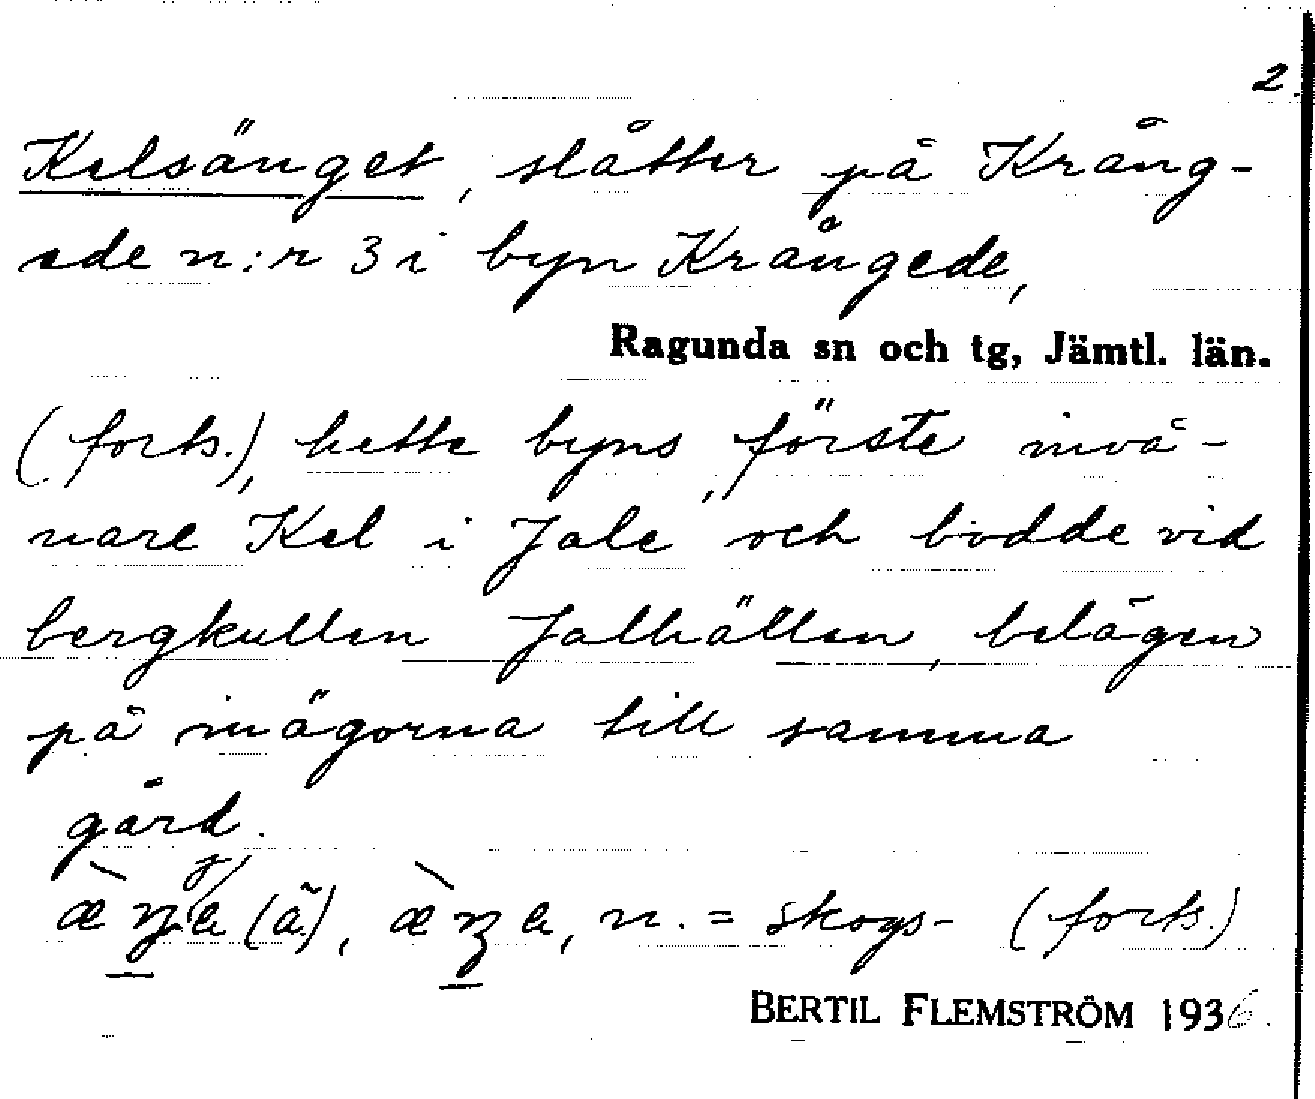 2.
Kelsänget, slåtter på Krång-
ede n:r 3 i byn Krångede,
Ragunda sn och tg, Jämtl. län.
(forts.), hette byns förste invå-
nare Kel i Jale och bodde vid
bergkullen Jalhällen, belägen
på inägorna till samma
gård.
n. = skogs- (forts.)
BERTIL FLEMSTRÖM 1936.